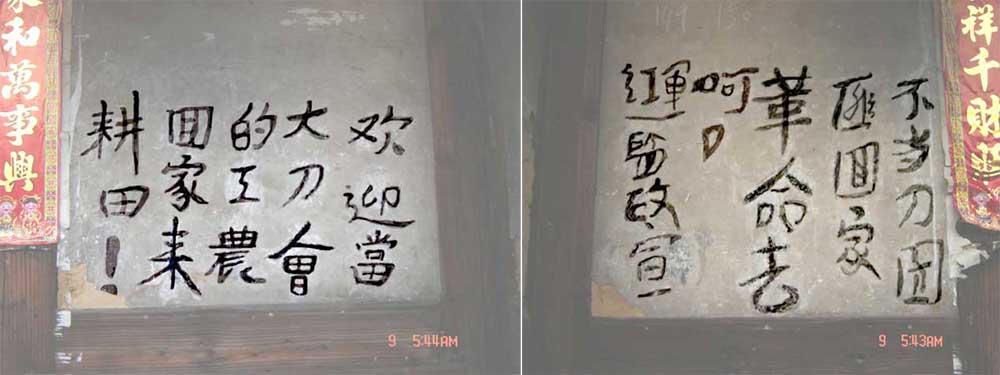 家和萬事興
欢迎當
大刀會
的工農
回家来
耕田！
9 5:44AM
祥千財
不当刀团
匪回家
革命去
呵！
红軍监政宣
9 5:43AM